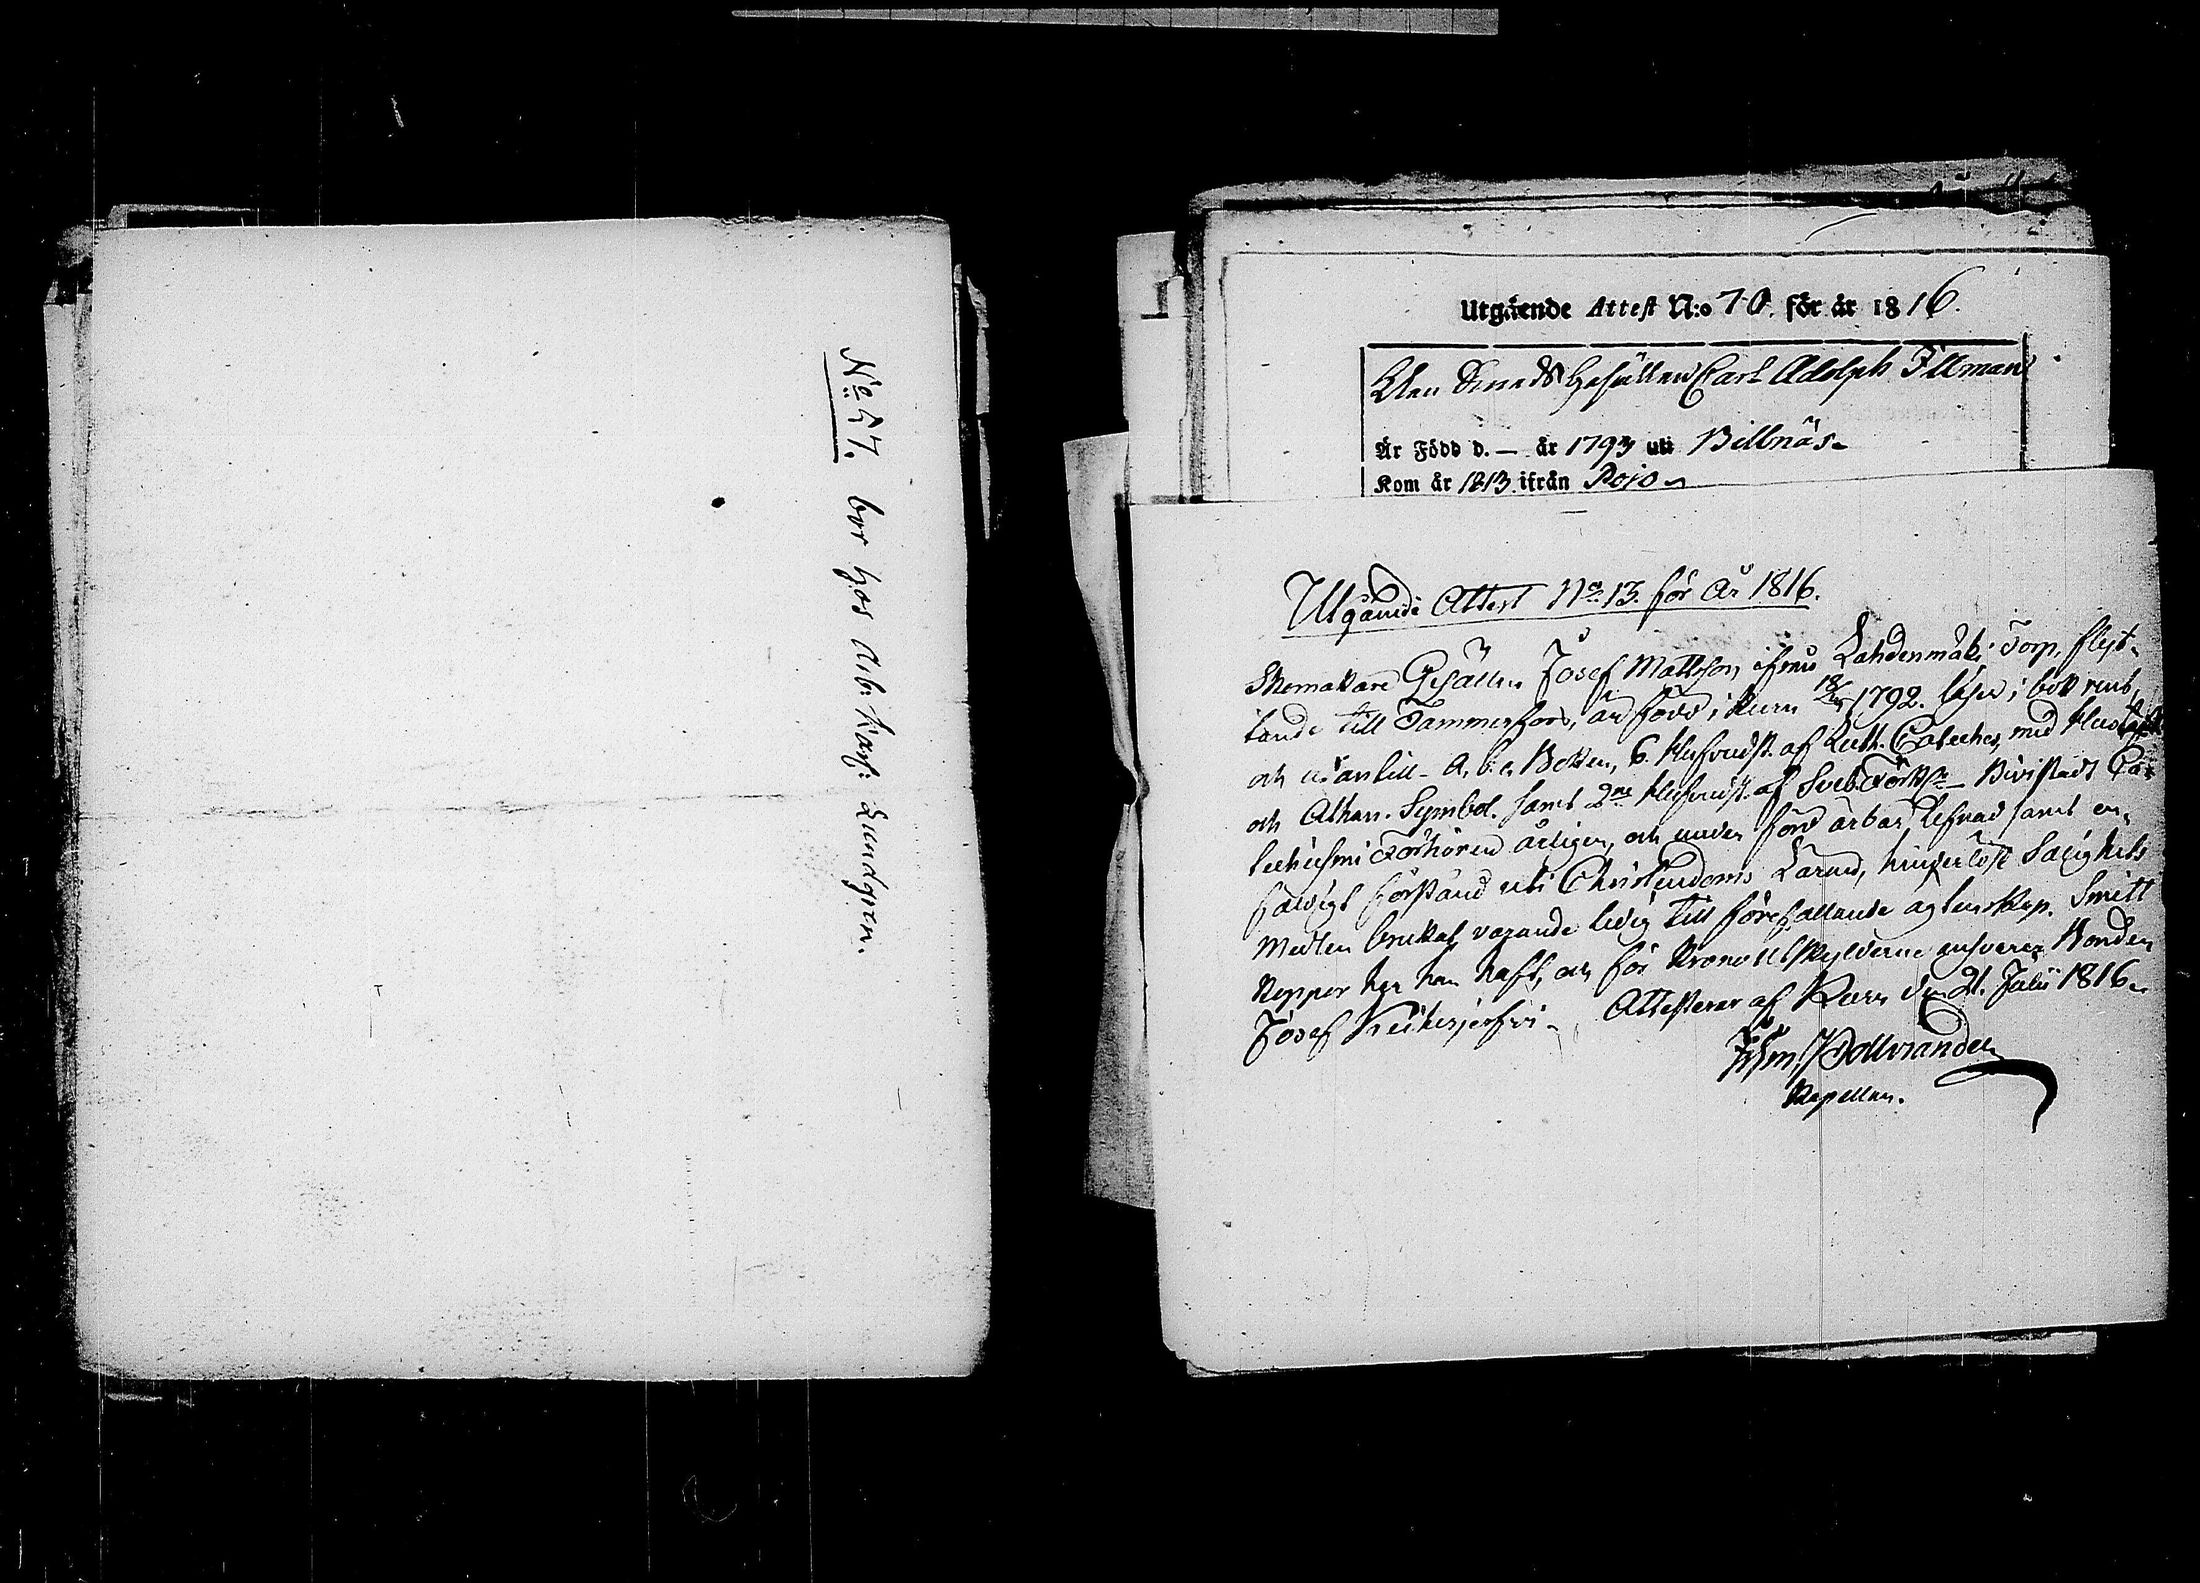 No 57. bor hos Arb: Karl: Lundgren.
Utgående Attest N:o 70. för år 1816.
Smeds Gesällen Carl Adolph Illman
Är Född d. — år 1793 uti Billnäs
Kom år 1813 ifrån Pojo
Utgående Attest No 13. för År 1816.
Skomakare Gesällen Josef Mattsson, ifrån Lahdenmäki Torp, flyt-
tande till Tammerfors, är född i Kuru 1792. läser i bok rent,
och utantill A. b. c. Boken, 6. Hufvudst. af Luth. Cateches, med Hustaflan
och Athan. Symbol. samt 2ne Hufvudst. af Sveb. Förkl. Bivistadt Ca-
techismi Förhören årligen, och under förd ärbar lefnad samt en-
faldigt förstånd uti Christendoms Läran, hinderlöst Salighets
Medlen brukat, varande ledig till förefallande ägtenskap. Smitt
Koppor har han haft, och för Kronoutskylderne ansvarar Bonden
Josef Keihesjerfvi. Attesterar af Kuru den 21. Julii 1816.
Kapellan.